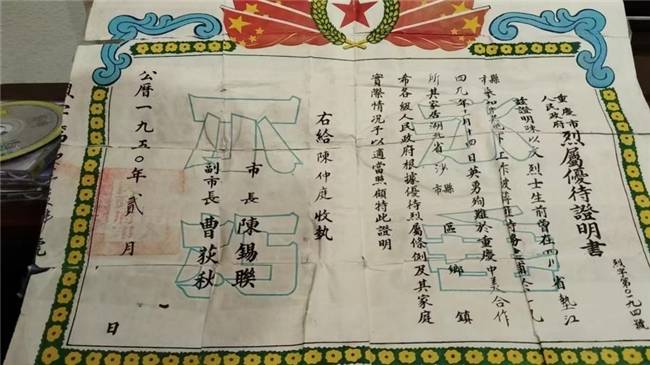 烈字第0一九四號
重慶市
人民政府
烈屬優待證明書
茲證明陳以文烈士生前曾在四川省墊江
縣工作被蔣匪特務逮捕於一九
四九年月十四日英勇殉難於重慶中美合作
所其家居湖北省沙市縣區鄉鎮
希各級人民政府根據優待烈屬條例及其家庭
實際情況予以適當照顧特此證明
右給陳仲庭收執
市長陳錫聯
副市長曹荻秋
公曆一九五0年貳月日